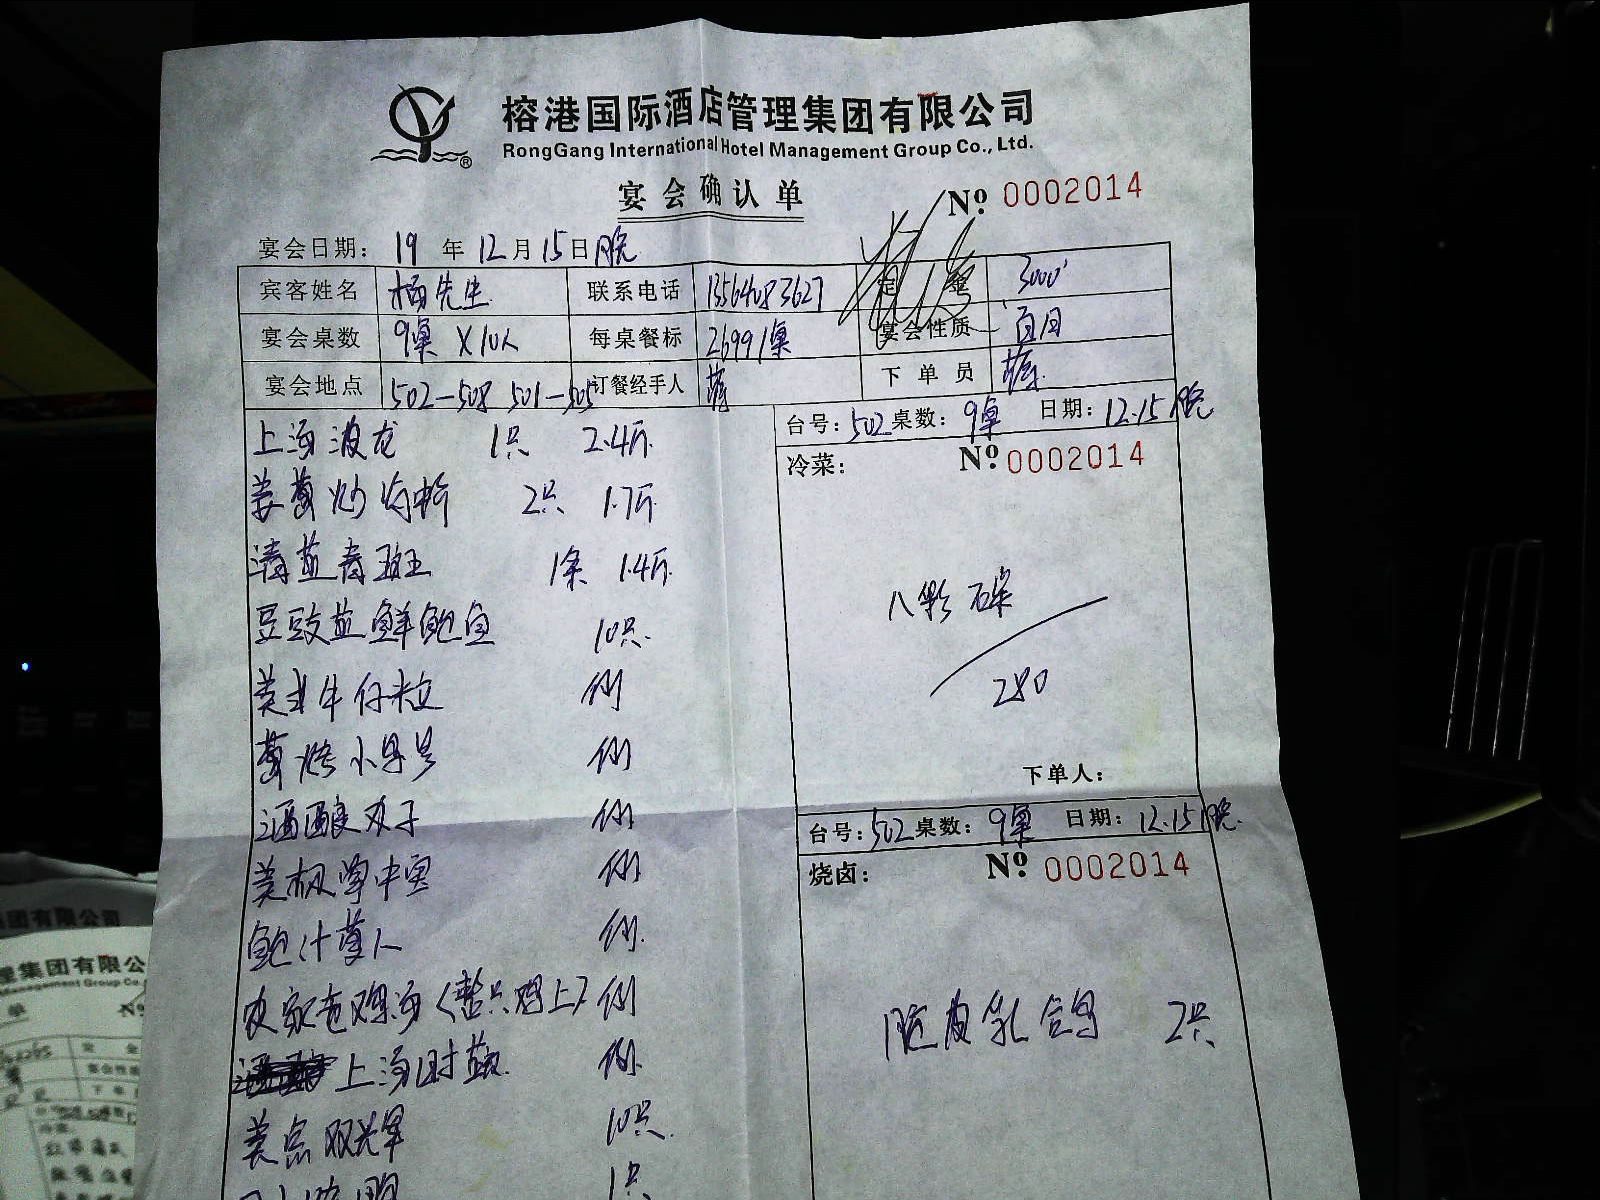 榕港国际酒店管理集团有限公司
RongGang International Hotel Management Group Co., Ltd.
宴会确认单
Nº. 0002014
宴会日期: 19 年 12 月 15 日 晚
宾客姓名 杨先生 联系电话 13564083627 定 金 3000
宴会桌数 9桌 X 10人 每桌餐标 2699/桌 宴会性质 百日
宴会地点 502-508 501-505 订餐经手人 下单员
台号: 502 桌数: 9桌 日期: 12.15 晚
上海波龙 1只 2.4斤
冷菜: Nº 0002014
姜葱炒 2只 1.7斤
清蒸青斑 1条 1.4斤
八彩碟
豆豉蒸鲜鲍鱼 10只
280
牛仔粒 例
葱烤小 例
下单人:
酒酿丸子 例
台号: 502 桌数: 9桌 日期: 12.15 晚
美极 例
烧卤: Nº 0002014
鲍汁 例
农家 例
脆皮乳鸽 2只
上海时蔬 例
美点双辉 10只
1只
集团有限公司
理集团有限公
Management Group Co.